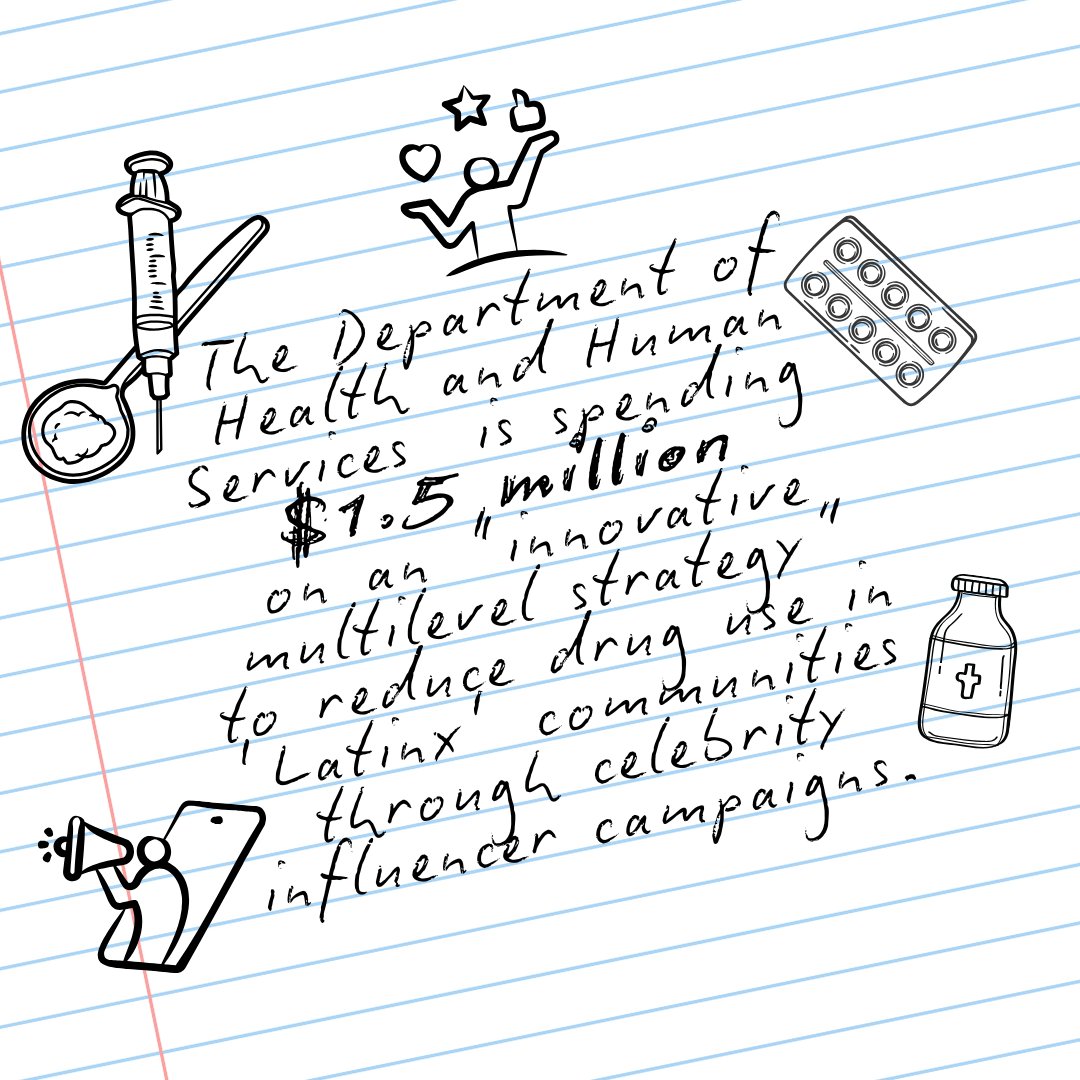 The Department of
Health and Human
Services is spending
$1.5 million
on an "innovative"
multilevel strategy
to reduce drug use in
'Latinx' communities
through celebrity
influencer campaigns.